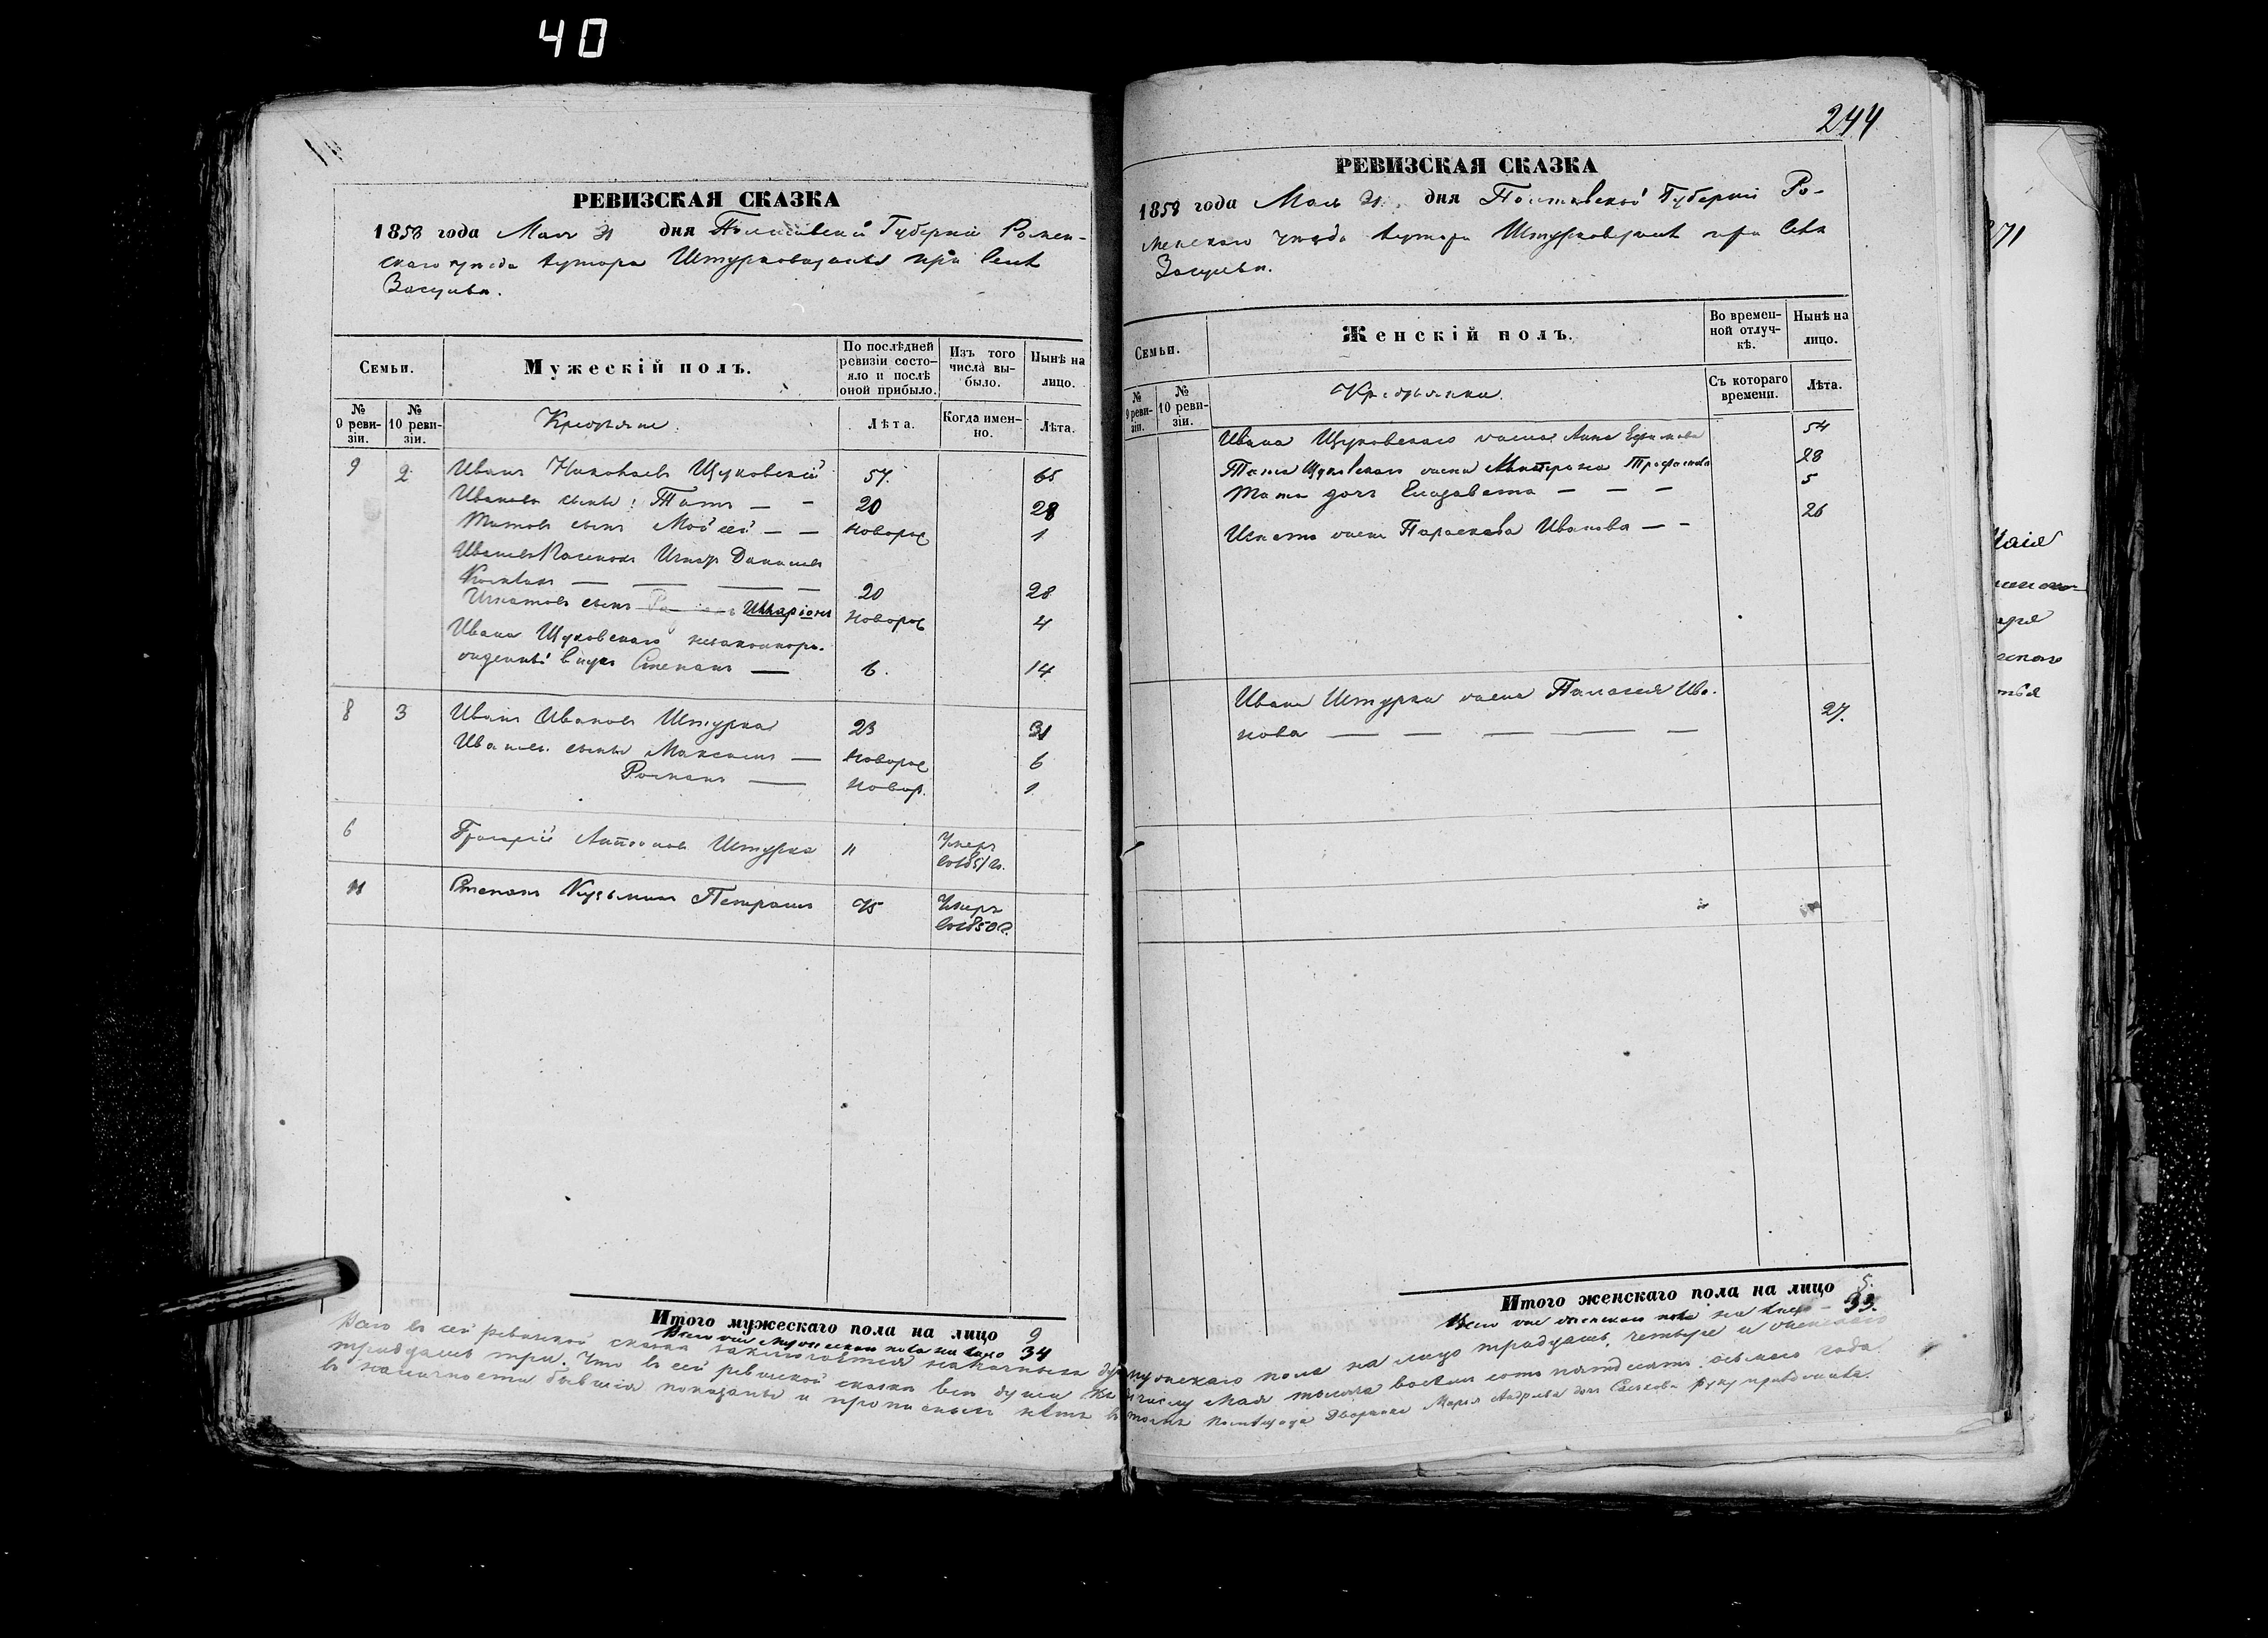 40
РЕВИЗСКАЯ СКАЗКА
1858 года Мая 31 дня Полтавской Губерніи Ромен-
скаго уезда хутора при Селе
Засульи.
Семьи.
Мужескій полъ.
По послѣдней ревизіи состо-яло и послѣ оной прибыло.
Изъ того числа вы-было.
Нынѣ на лицо.
№ 9 реви-зіи.
№ 10 реви-зіи.
Крестьяне
Лѣта.
Когда имен-но.
Лѣта.
9 2 Иванъ Щуковскій 57. 65
Ивановъ сынъ: Титъ — — 20 28
Титовъ сынъ Моисей — — новорож 1
Ивановъ Игнатъ Даниловъ
— — — 20 28
Игнатовъ сынъ Илларіонъ новорож 4
Ивана Щуковскаго незаконнорож-
денный внукъ Степанъ — 6. 14
8 3 Иванъ Ивановъ Штурка 23 31
Ивановы сынъы Максимъ — новорож 6
Романъ — новор. 1
6 Григорій Антоновъ Штурка 11 Умеръ
въ 1851 г.
11 Степанъ Кузьминъ 75 Умеръ
въ 1850 г.
Итого мужескаго пола на лицо 9
Всего же мужескаго пола на лицо 34
244
РЕВИЗСКАЯ СКАЗКА
1858 года Мая 31 дня Полтавской Губерніи Ро-
менскаго уезда хутора при Селе
Засульи.
Семьи.
Женскій полъ.
Во времен-ной отлуч-кѣ.
Нынѣ на лицо.
№ 9 реви-зіи.
№ 10 реви-зіи.
Крестьянки.
Съ котораго времени.
Лѣта.
Ивана Щуковскаго жена Анна Ефимова 54
Тита Щуковскаго жена Трофимова 28
Тита дочь Елизавета — — — 5
Игната жена Параскева Иванова — — 26
Ивана Штурки жена Палагея Ива-
нова — — — — — 27.
Итого женскаго пола на лицо 5.
Всего же женскаго пола на лицо — 33.
Всего въ сей ревизской сказки заключается наличныхъ душъ мужескаго пола на лицо тридцать четыре и женскаго
тридцать три. Что въ сей ревизской сказки все души къ числу Мая тысяча восемь сотъ пятдесятъ осьмаго года
въ наличности бывшія показаны и прописныхъ нетъ въ томъ Дворянка Марія дочь руку приложила.